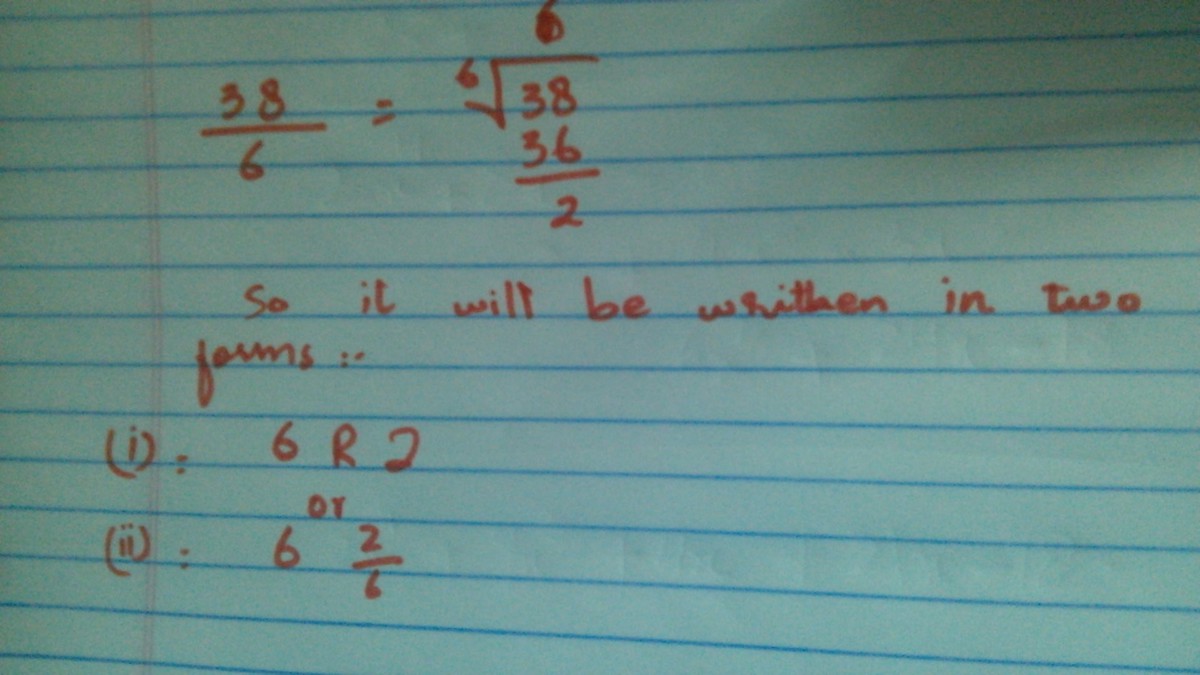 6
38/6 = 6√38
36
2
So it will be written in two
forms :-
(i) : 6 R 2
or
(ii) : 6 2/6